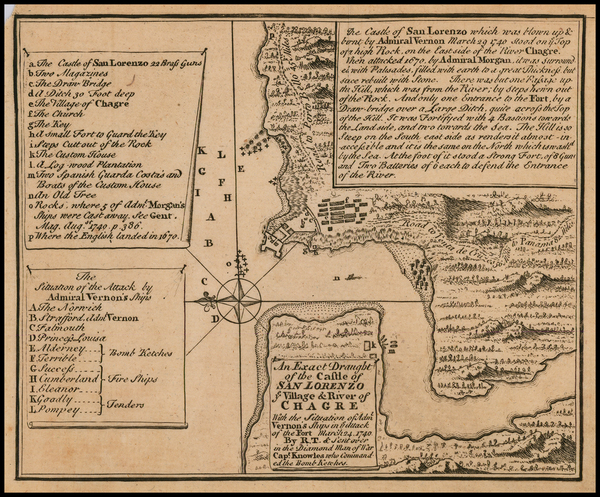 a. The Castle of San Lorenzo 22 Brass Guns
b Two Magazines
c The Draw Bridge
d A Ditch 30 Foot deep
e The Village of Chagre
f The Church
g The Key
h A small Fort to Guard the Key
i Steps Cutt out of the Rock
k The Custom House
l A Log-wood Plantation
m Two Spanish Guarda Costa's and
Boats of the Custom House
n An Old Tree
o Rocks where 5 of Adml. Morgan's
Ships were Cast away. See Gent.
Mag. Augst. 1740 p. 386.
p Where the English landed in 1670.
The Castle of San Lorenzo which was blown up &
burnt by Admiral Vernon March 29 1740 stood on ye Top
of a high Rock, on the East side of the River Chagre.
When attacked 1670, by Admiral Morgan, it was surround
ed with Palisados filled with earth to a great Thickness but
since rebuilt with Stone. There was but one Passage up
the Hill, which was from the River; by Steps hewn out
of the Rock. And only one Entrance to the Fort, by a
Draw-bridge over a Large Ditch, quite across ye Top
of the Hill. It was Fortified with 4 Bastions towards
the Land side, and two towards the Sea. The Hill is so
Steep on the South east side as renders it almost in-
accessible and it is the same on the North which is wash'd
by the Sea. At the foot of it stood a Strong Fort, of 8 Guns
and Two Batteries of 6 each to defend the Entrance
of the River.
K
L
I
F
E
G
H
A
B
C
D
o
n
m
Road to
Panama
The
Situation of the Attack by
Admiral Vernon's Ships
A The Norwich
B Strafford. Adml. Vernon
C Falmouth
D Princess Louisa
E Alderney
F Terrible
Bomb Ketches
G Success
H Cumberland
I Eleanor
Fire Ships
K Goodly
L Pompey
Tenders
An Exact Draught
of the Castle of
SAN LORENZO
& ye Village & River of
CHAGRE
With the Situation of Adml.
Vernon's Ships in ye Attack
of the Fort March 24. 1740
By R.T. & Sent over
in the Diamond Man of War
Capt. Knowles who Command
ed the Bomb Ketches.